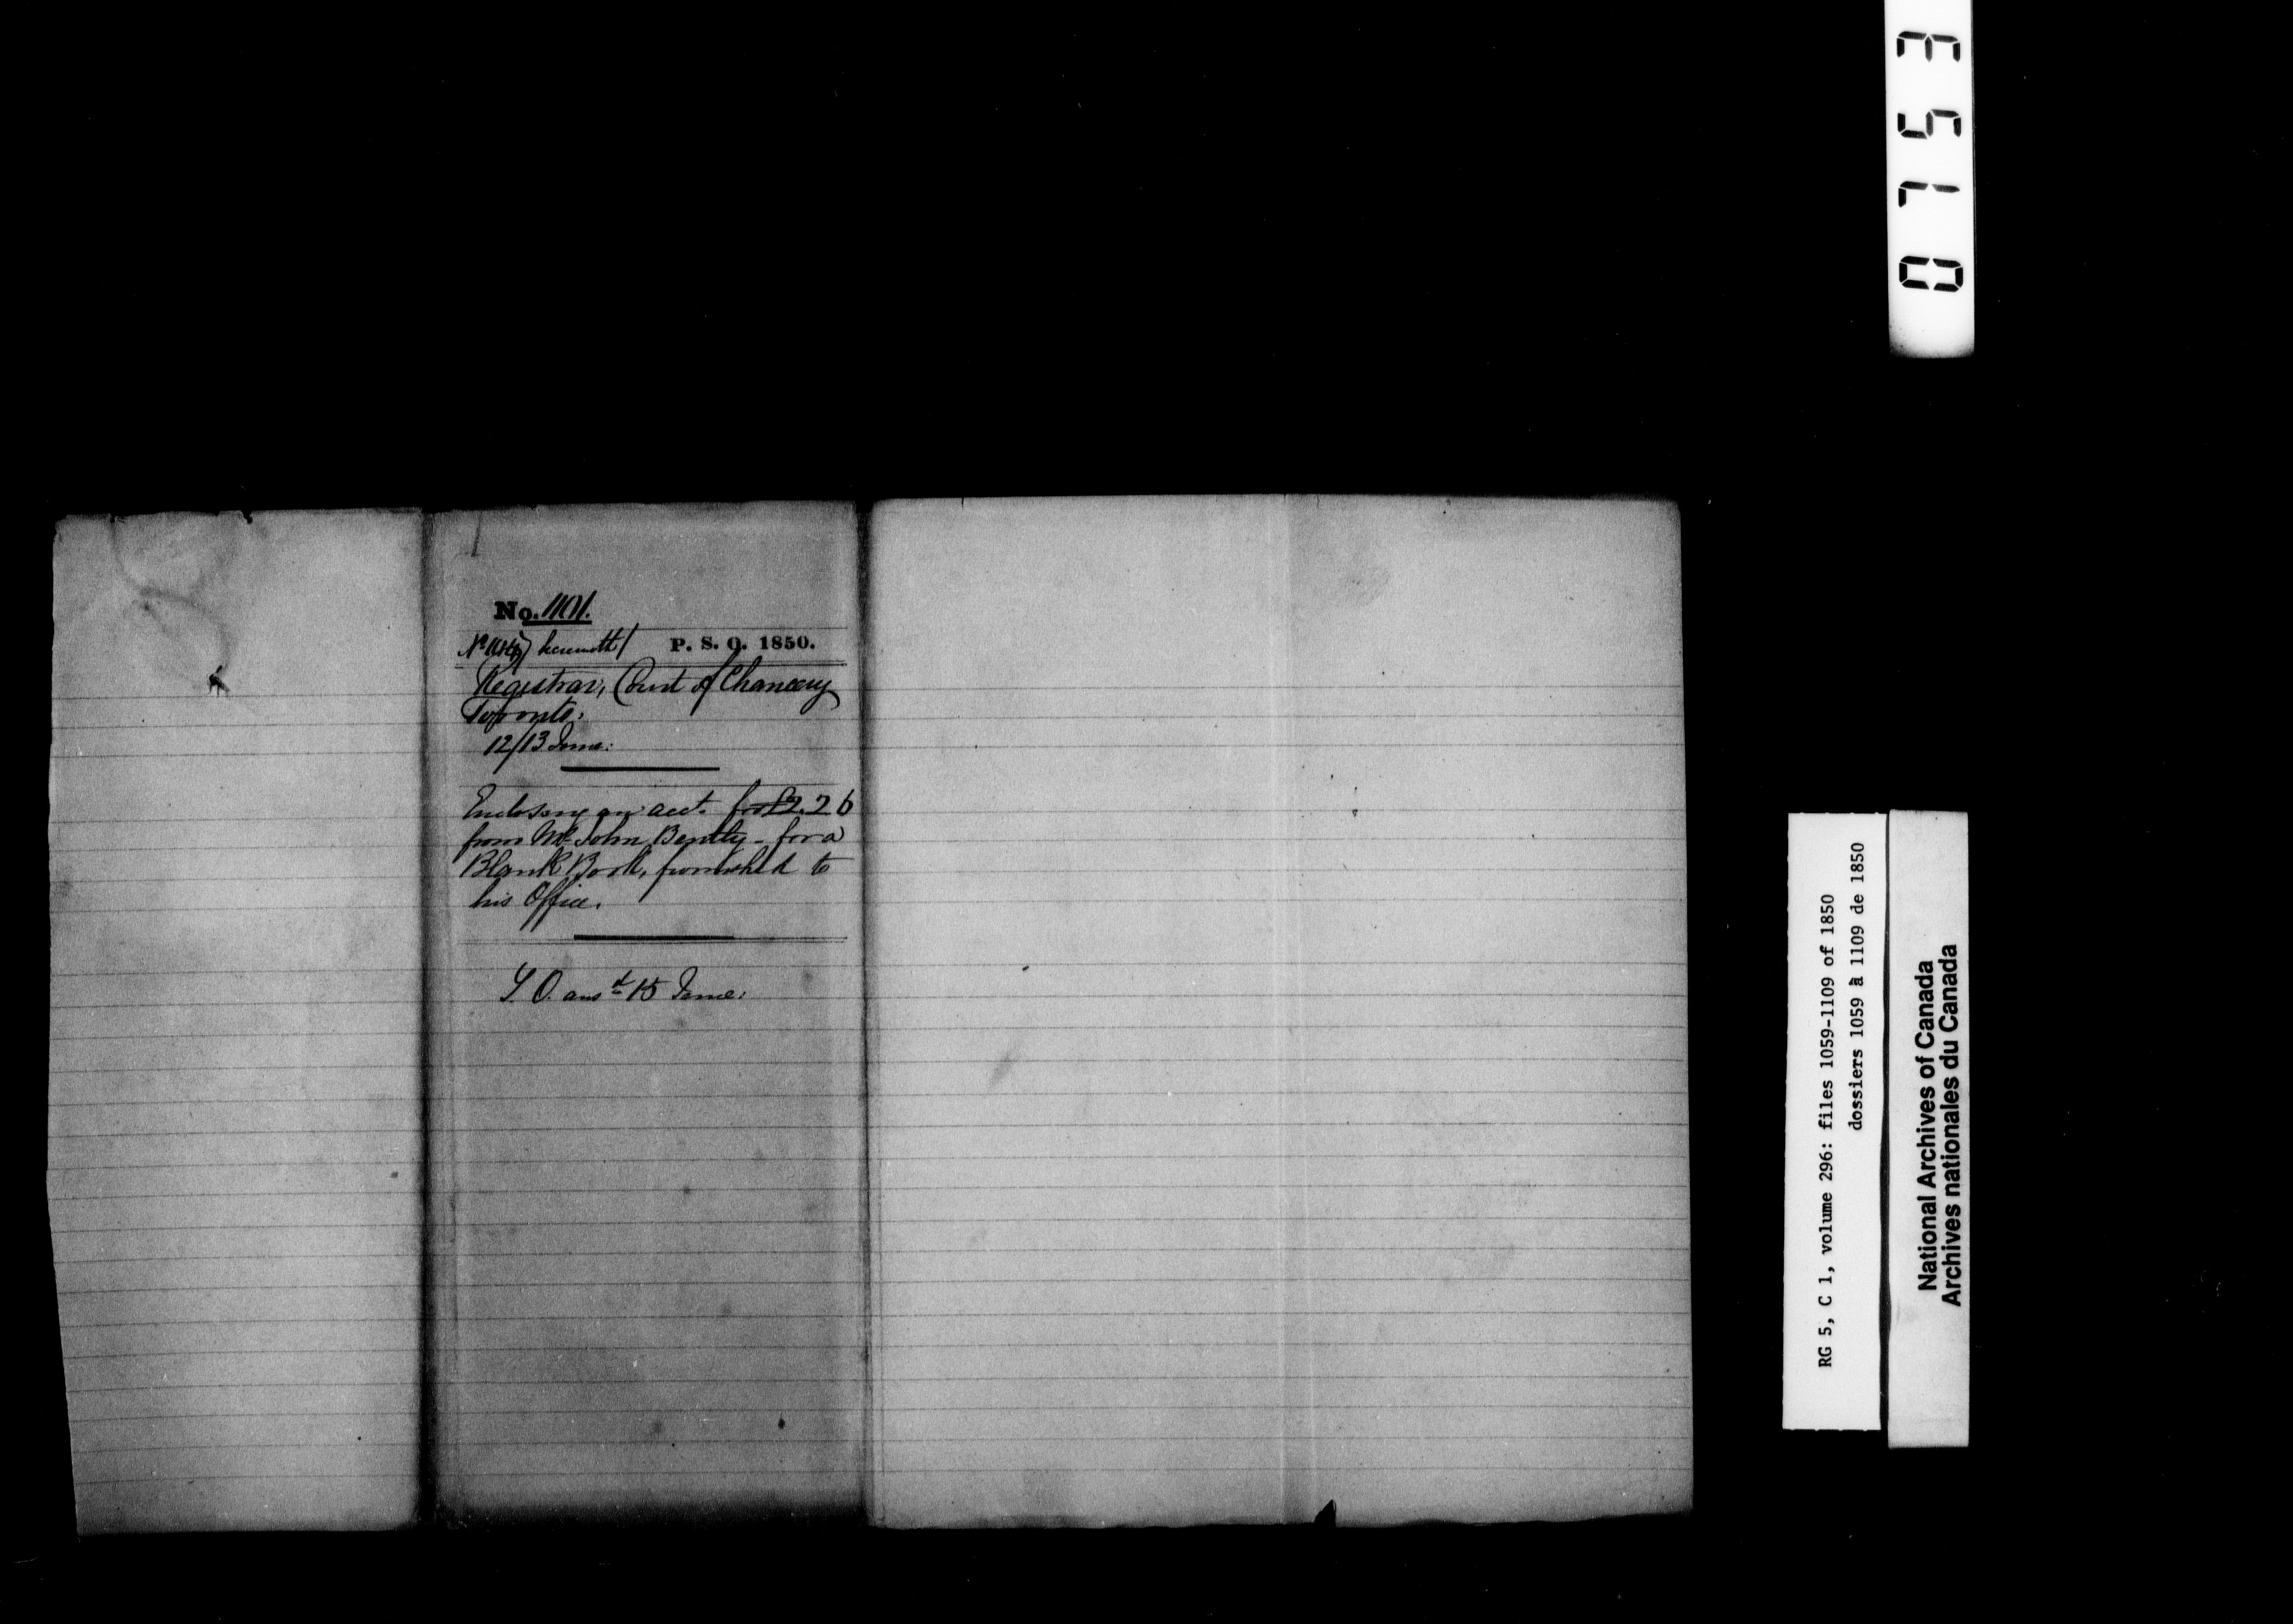 No. 1101.
herewith/ P. S. O. 1850.
Registrar, Court of Chancery
Toronto.
12/13 June.
Enclosing an acct. for £2.2 6
from Mr John Bentley - for a
Blank Book, furnished to
his Office.
ansd 15 June.
0753
RG 5, C 1, volume 296: files 1059-1109 of 1850
dossiers 1059 à 1109 de 1850
National Archives of Canada
Archives nationales du Canada